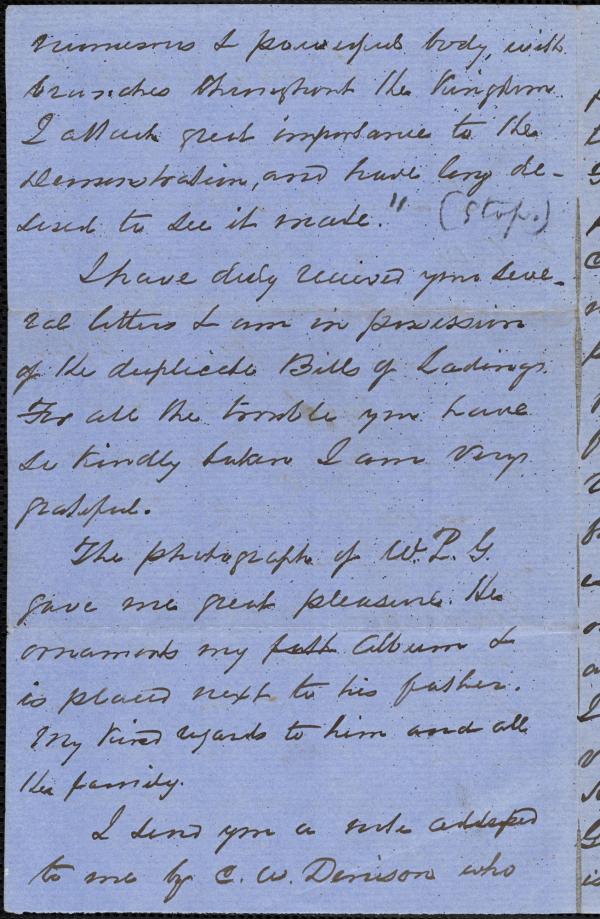 numerous & powerful body, with
branches throughout the Kingdom.
I attach great importance to the
Demonstration, and have long de-
sired to see it made." (Stop.)
I have duly received your seve-
ral letters & am in possession
of the duplicate Bills of Ladings.
For all the trouble you have
so kindly taken I am very
grateful.
The photograph of W. P. G.
gave me great pleasure. He
ornaments my Album &
is placed next to his father.
My kind regards to him and all
the family.
I send you a note addressed
to me by C. W. Denison who